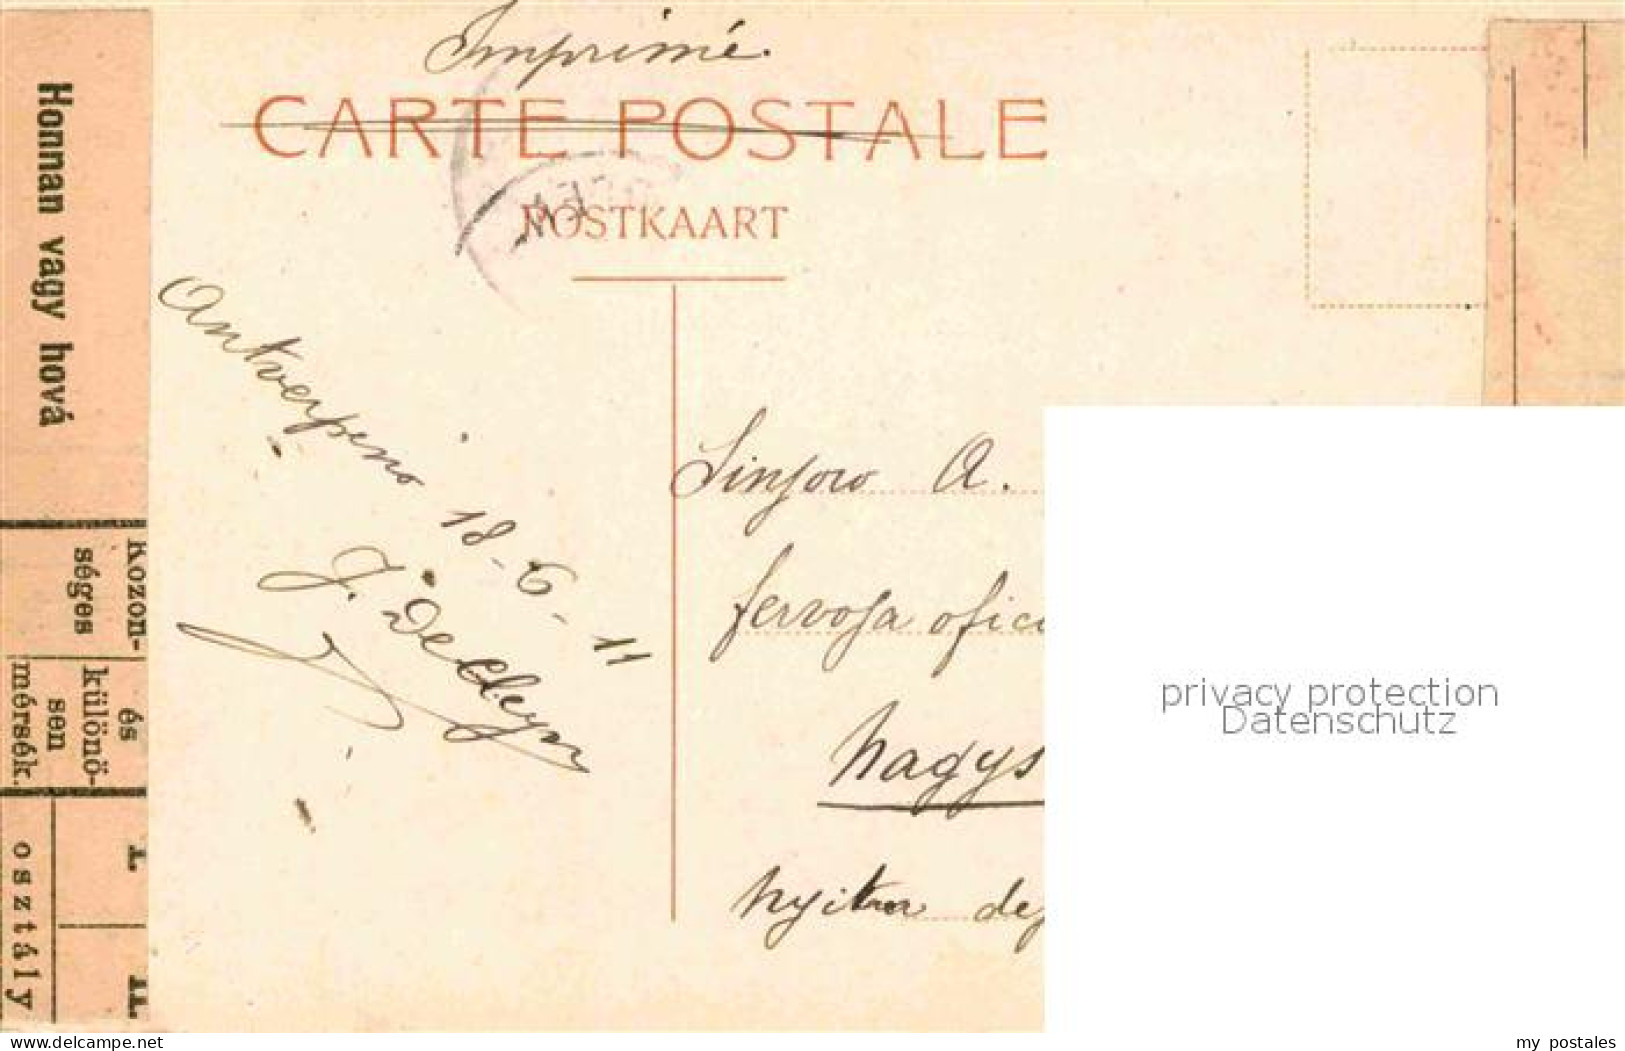 Imprimé.
CARTE POSTALE
POSTKAART
Antverpeno 18-6-11
J. De
Sinjoro A.
fervoja ofici
Nagys
Nyitra
Honnan vagy hová
Közön-
séges
és
különö-
sen
mérsék.
I.
II.
osztály
privacy protection
Datenschutz
www.delcampe.net
my postales